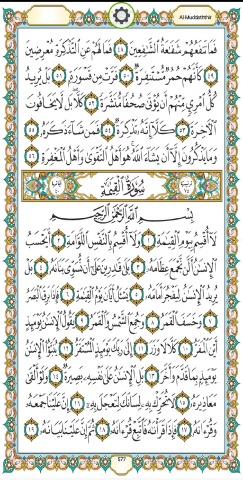 Al-Muddaththir
فَمَا تَنفَعُهُمْ شَفَاعَةُ الشَّافِعِينَ ٤٨ فَمَا لَهُمْ عَنِ التَّذْكِرَةِ مُعْرِضِينَ
٤٩ كَأَنَّهُمْ حُمُرٌ مُّسْتَنفِرَةٌ ٥٠ فَرَّتْ مِن قَسْوَرَةٍ ٥١ بَلْ يُرِيدُ
كُلُّ امْرِئٍ مِّنْهُمْ أَن يُؤْتَىٰ صُحُفًا مُّنَشَّرَةً ٥٢ كَلَّا بَل لَّا يَخَافُونَ
الْآخِرَةَ ٥٣ كَلَّا إِنَّهُ تَذْكِرَةٌ ٥٤ فَمَن شَاءَ ذَكَرَهُ ٥٥
وَمَا يَذْكُرُونَ إِلَّا أَن يَشَاءَ اللَّهُ هُوَ أَهْلُ التَّقْوَىٰ وَأَهْلُ الْمَغْفِرَةِ ٥٦
سُورَةُ الْقِيَامَةِ
بِسْمِ اللَّهِ الرَّحْمَٰنِ الرَّحِيمِ
لَا أُقْسِمُ بِيَوْمِ الْقِيَامَةِ ١ وَلَا أُقْسِمُ بِالنَّفْسِ اللَّوَّامَةِ ٢ أَيَحْسَبُ
الْإِنسَانُ أَلَّن نَّجْمَعَ عِظَامَهُ ٣ بَلَىٰ قَادِرِينَ عَلَىٰ أَن نُّسَوِّيَ بَنَانَهُ ٤ بَلْ
يُرِيدُ الْإِنسَانُ لِيَفْجُرَ أَمَامَهُ ٥ يَسْأَلُ أَيَّانَ يَوْمُ الْقِيَامَةِ ٦ فَإِذَا بَرِقَ الْبَصَرُ
٧ وَخَسَفَ الْقَمَرُ ٨ وَجُمِعَ الشَّمْسُ وَالْقَمَرُ ٩ يَقُولُ الْإِنسَانُ يَوْمَئِذٍ
أَيْنَ الْمَفَرُّ ١٠ كَلَّا لَا وَزَرَ ١١ إِلَىٰ رَبِّكَ يَوْمَئِذٍ الْمُسْتَقَرُّ ١٢ يُنَبَّأُ الْإِنسَانُ
يَوْمَئِذٍ بِمَا قَدَّمَ وَأَخَّرَ ١٣ بَلِ الْإِنسَانُ عَلَىٰ نَفْسِهِ بَصِيرَةٌ ١٤ وَلَوْ أَلْقَىٰ
مَعَاذِيرَهُ ١٥ لَا تُحَرِّكْ بِهِ لِسَانَكَ لِتَعْجَلَ بِهِ ١٦ إِنَّ عَلَيْنَا جَمْعَهُ
وَقُرْآنَهُ ١٧ فَإِذَا قَرَأْنَاهُ فَاتَّبِعْ قُرْآنَهُ ١٨ ثُمَّ إِنَّ عَلَيْنَا بَيَانَهُ ١٩
577